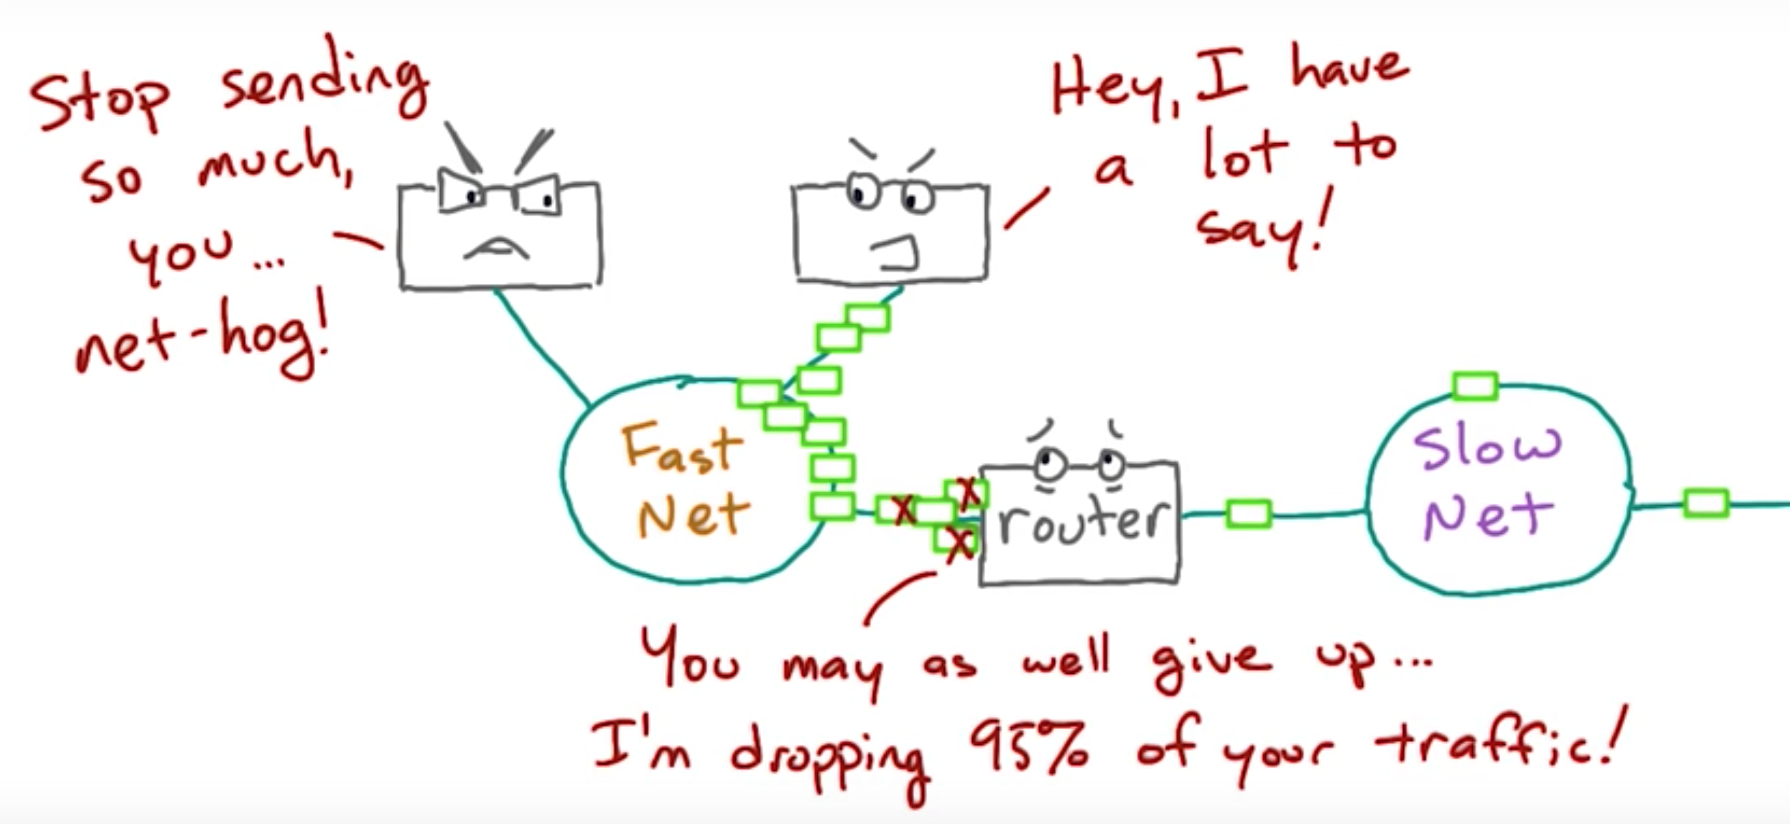 Stop sending
so much,
you...
net-hog!
Hey, I have
a lot to
say!
Fast
Net
X
X
X
router
Slow
Net
You may as well give up...
I'm dropping 95% of your traffic!